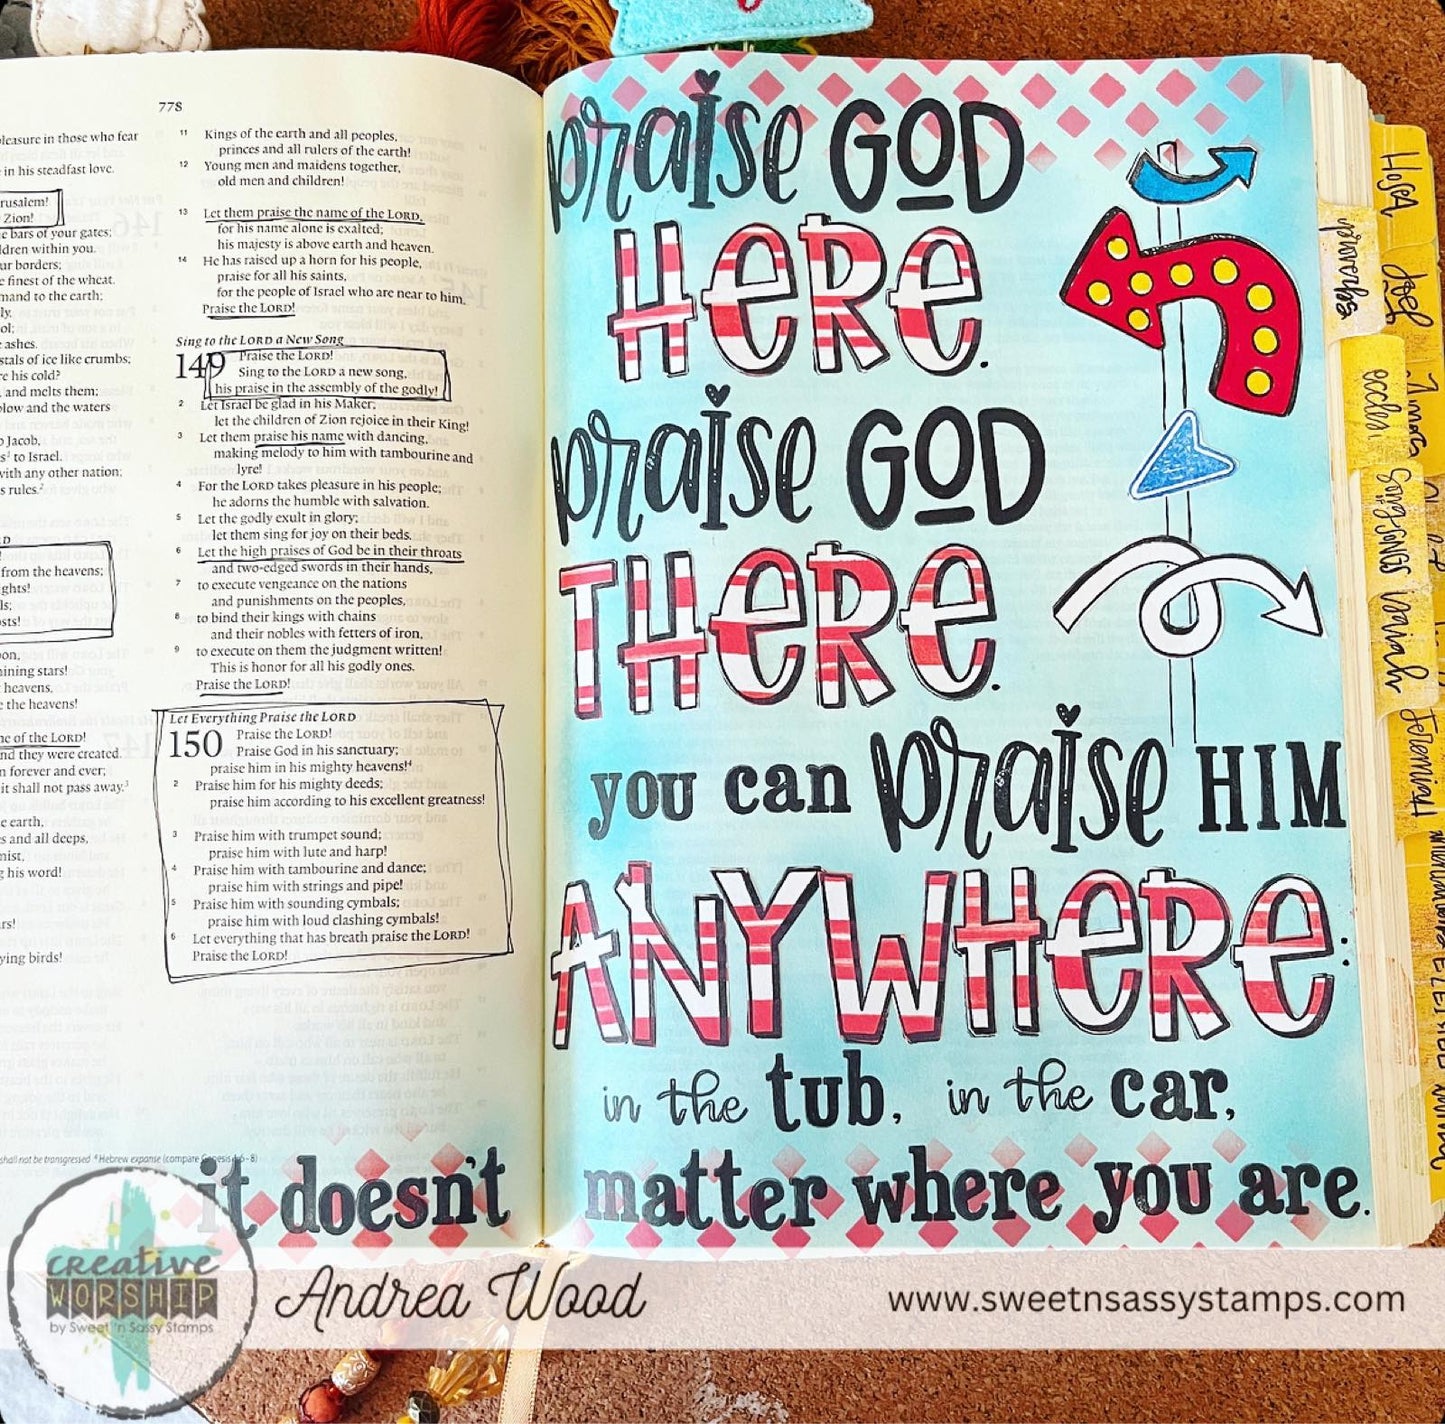 778
pleasure in those who fear
in his steadfast love.
rusalem!
Zion!
e bars of your gates;
ldren within you.
ur borders;
e finest of the wheat.
mand to the earth;
ly.
ol;
ashes.
stals of ice like crumbs;
re his cold?
, and melts them;
blow and the waters
o Jacob,
s¹ to Israel.
with any other nation;
s rules.²
from the heavens;
ghts!
ls;
osts!
oon,
ining stars!
heavens,
e the heavens!
me of the LORD!
nd they were created.
n forever and ever;
it shall not pass away.³
e earth,
es and all deeps,
mist,
g his word!
rs!
ying birds!
11 Kings of the earth and all peoples,
princes and all rulers of the earth!
12 Young men and maidens together,
old men and children!
13 Let them praise the name of the LORD,
for his name alone is exalted;
his majesty is above earth and heaven.
14 He has raised up a horn for his people,
praise for all his saints,
for the people of Israel who are near to him.
Praise the LORD!
Sing to the LORD a New Song
149 Praise the LORD!
Sing to the LORD a new song,
his praise in the assembly of the godly!
2 Let Israel be glad in his Maker;
let the children of Zion rejoice in their King!
3 Let them praise his name with dancing,
making melody to him with tambourine and
lyre!
4 For the LORD takes pleasure in his people;
he adorns the humble with salvation.
5 Let the godly exult in glory;
let them sing for joy on their beds.
6 Let the high praises of God be in their throats
and two-edged swords in their hands,
7 to execute vengeance on the nations
and punishments on the peoples,
8 to bind their kings with chains
and their nobles with fetters of iron,
9 to execute on them the judgment written!
This is honor for all his godly ones.
Praise the LORD!
Let Everything Praise the LORD
150 Praise the LORD!
Praise God in his sanctuary;
praise him in his mighty heavens!⁴
2 Praise him for his mighty deeds;
praise him according to his excellent greatness!
3 Praise him with trumpet sound;
praise him with lute and harp!
4 Praise him with tambourine and dance;
praise him with strings and pipe!
5 Praise him with sounding cymbals;
praise him with loud clashing cymbals!
6 Let everything that has breath praise the LORD!
Praise the LORD!
shall not be transgressed ⁴ Hebrew expanse (compare Genesis 1:6-8)
praise GOD
HERE.
praise GOD
THERE.
you can praise HIM
ANYWHERE:
in the tub, in the car,
it doesn't matter where you are.
Hosea
Joel
proverbs
eccles.
Song of Songs
Isaiah
Jeremiah
creative
WORSHIP
by Sweet 'n Sassy Stamps
Andrea Wood
www.sweetnsassystamps.com